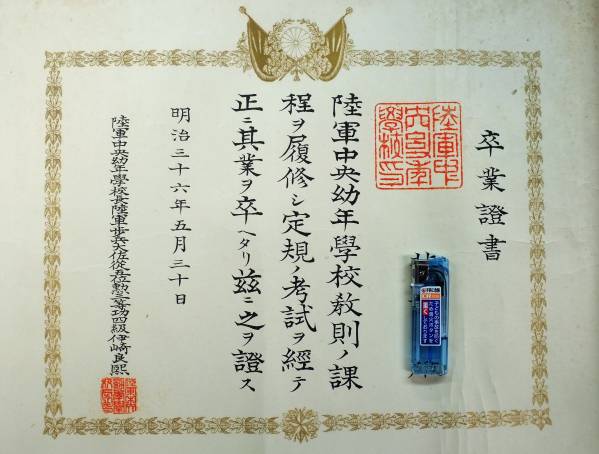 卒業證書
陸軍中央幼年學校敎則ノ課
程ヲ履修シ定規ノ考試ヲ經テ
正ニ其業ヲ卒ヘタリ茲ニ之ヲ證ス
明治三十六年五月三十日
陸軍中央幼年學校長陸軍步兵大佐從五位勲三等功四級伊崎良熙
陸軍中
央幼年
學校印